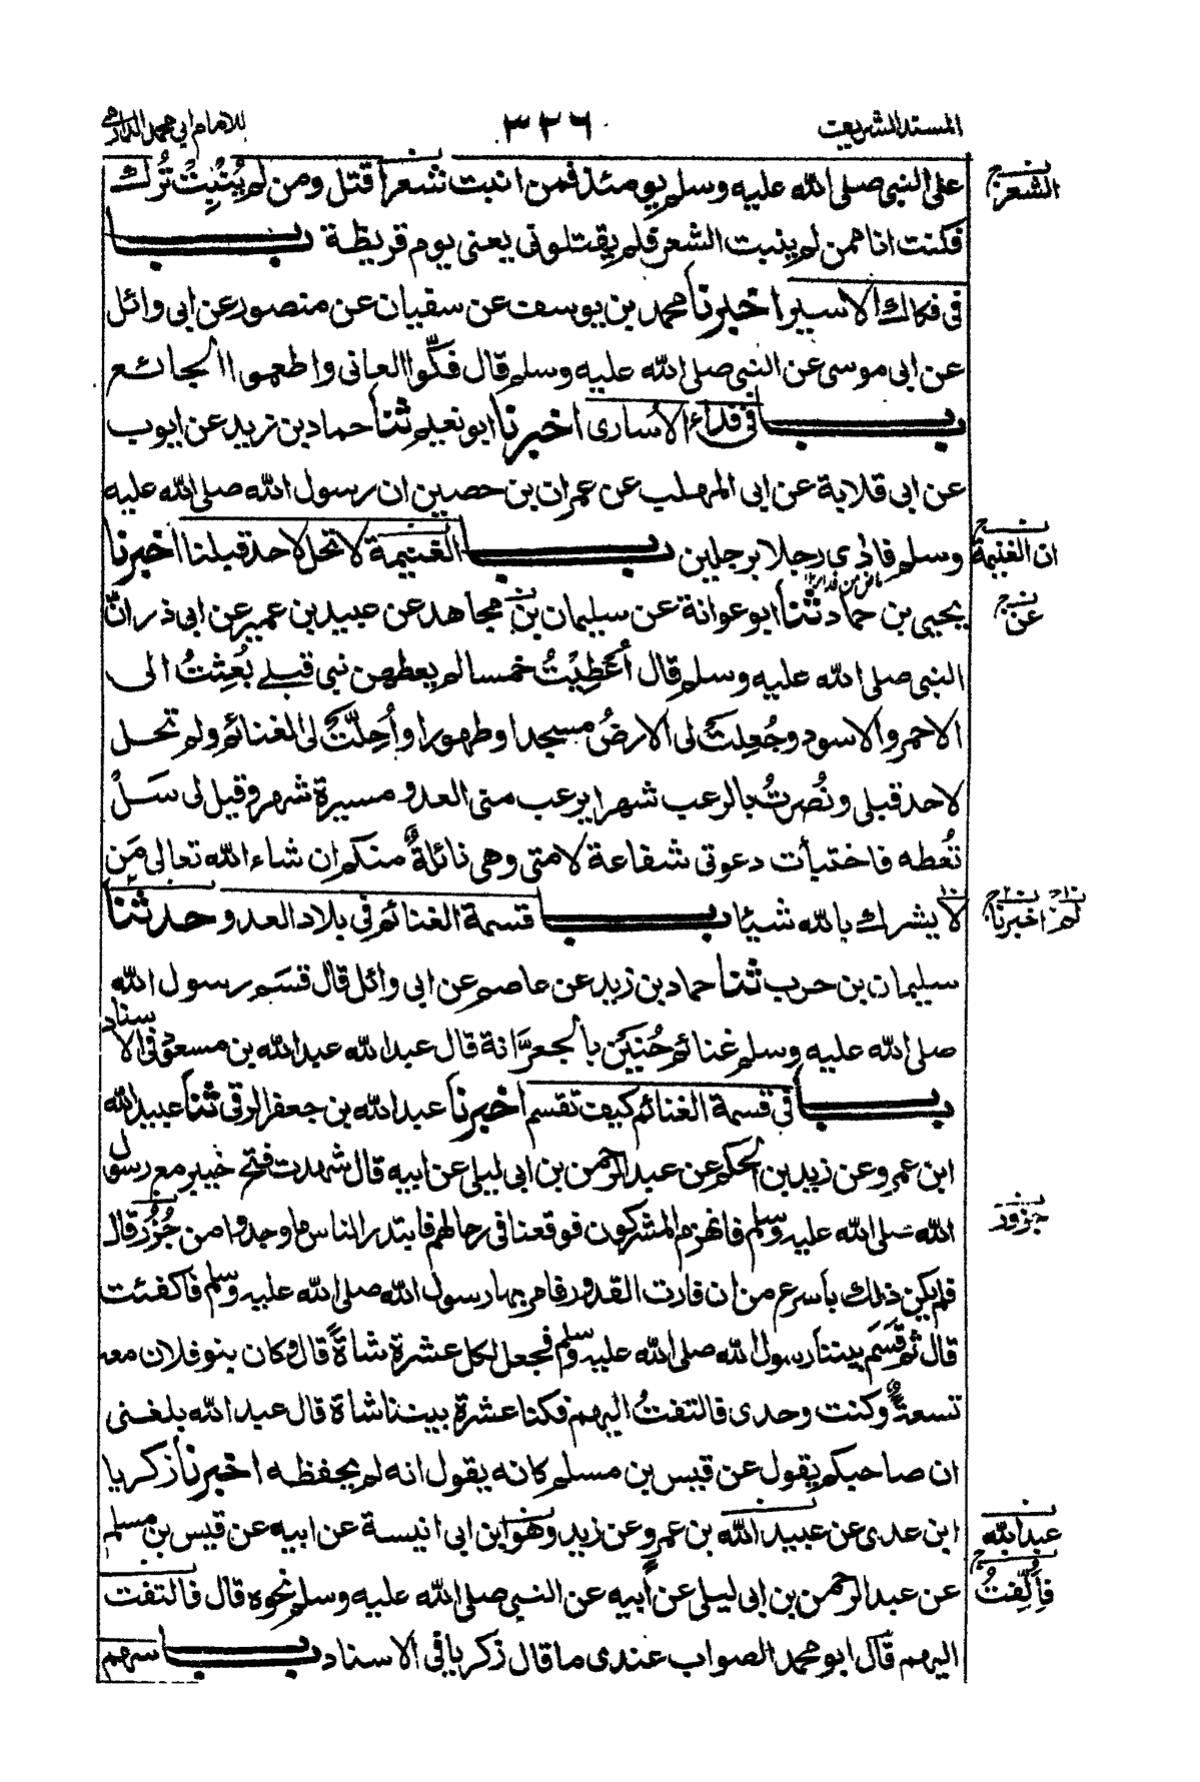 المسند الشريف
٣٢٦
للامام ابي محمد الدارمي
على النبي صلى الله عليه وسلم يومئذ فمن انبت شعرا قتل ومن لم يُنْبِتْ تُرك
الشعر
فكنت انا ممن لم ينبت الشعر فلم يقتلوني يعنى يوم قريظة باب
في فكاك الاسير اخبرنا محمد بن يوسف عن سفيان عن منصور عن ابى وائل
عن ابى موسى عن النبي صلى الله عليه وسلم قال فكّوا العانى واطعموا الجائع
باب في فداء الأسارى اخبرنا ابو نعيم ثنا حماد بن زيد عن ايوب
عن ابى قلابة عن ابى المهلب عن عمران بن حصين ان رسول الله صلى الله عليه
وسلم فادى رجلا برجلين باب الغنيمة لا تحل لاحد قبلنا اخبرنا
ان الغنيمة
يحيى بن حماد ثنا ابو عوانة عن سليمان بن مجاهد عن عبيد بن عمير عن ابى ذر انّ
عن
النبي صلى الله عليه وسلم قال أُعْطِيْتُ خمسا لم يعطهن نبى قبلى بُعِثْتُ الى
الاحمر والاسود وجُعِلت لى الارضُ مسجدا وطهورا وأُحِلّت لى الغنائم ولم تحل
لاحد قبلى ونُصرتُ بالرعب شهرا يرعب منى العدو مسيرة شهر وقيل لى سَلْ
تُعطه فاختبأت دعوتى شفاعة لامتى وهى نائلةٌ منكم ان شاء الله تعالى مَن
لا يشرك بالله شيئا باب قسمة الغنائم في بلاد العدو حدثنا
اخبرنا
سليمان بن حرب ثنا حماد بن زيد عن عاصم عن ابى وائل قال قسَم رسول الله
صلى الله عليه وسلم غنائم حُنَيْن بالجعرّانة قال عبد الله عبد الله بن مسعود في الاسناد
باب في قسمة الغنائم كيف تقسم اخبرنا عبد الله بن جعفر الرقى ثنا عبيد الله
ابن عمرو عن زيد بن الحكم عن عبد الرحمن بن ابى ليلى عن ابيه قال شهدت فتح خيبر مع رسول
الله صلى الله عليه وسلم فانهزم المشركون فوقعنا في رحالهم فابتدر الناس ما وجدوا من جُزُر قال
جزور
فلم يكن ذلك بأسرع من ان فارت القدور فامر بها رسول الله صلى الله عليه وسلم فاكفئت
قال ثم قَسَم بيننا رسول الله صلى الله عليه وسلم فجعل لكل عشرة شاةً قال وكان بنو فلان معه
تسعةٌ وكنت وحدى فالتفتُ اليهم فكنا عشرة بيننا شاة قال عبد الله بلغنى
ان صاحبكم يقول عن قيس بن مسلم كانه يقول انه لم يحفظه اخبرنا زكريا
ابن عدى عن عبيد الله بن عمرو عن زيد وهو ابن ابى انيسة عن ابيه عن قيس بن مسلم
عبد الله
عن عبد الرحمن بن ابى ليلى عن أبيه عن النبي صلى الله عليه وسلم نحوه قال فالتفت
فأُلِّفتُ
اليهم قال ابو محمد الصواب عندى ما قال زكريا في الاسناد باب سهم